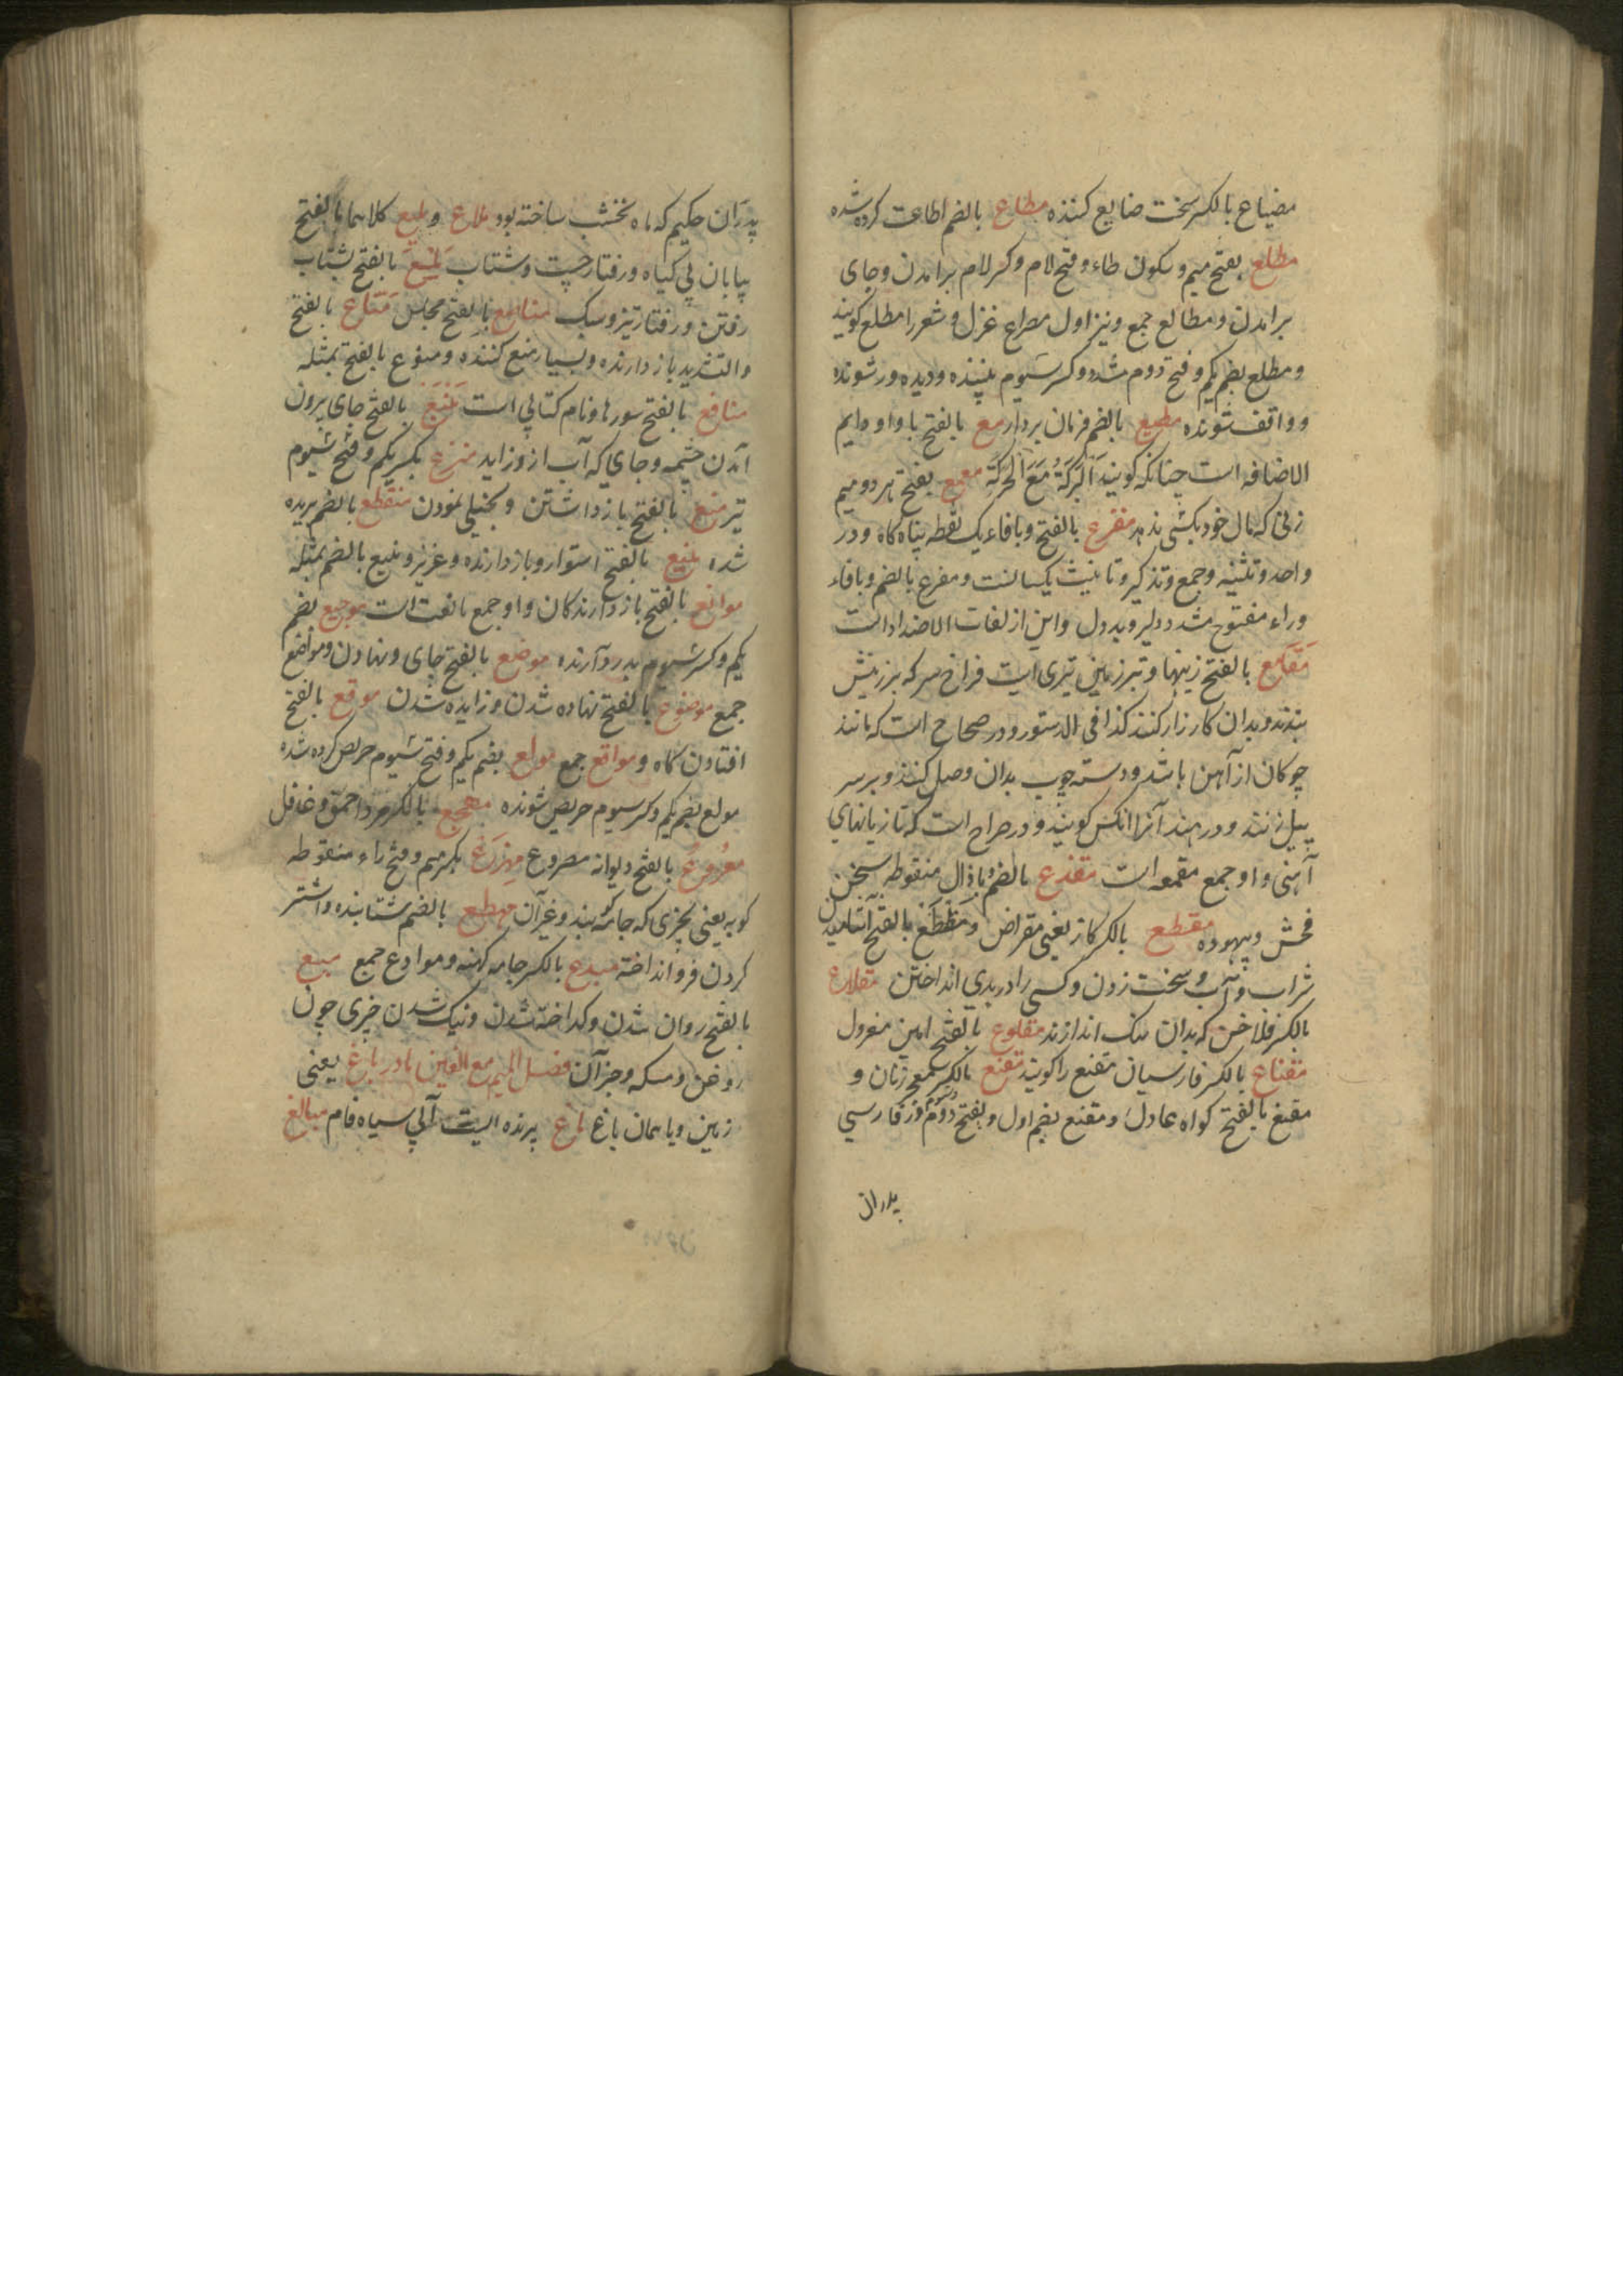 مضیاع بالکسر سخت ضایع کننده مطاع بالضم اطاعت کرده شده
مطلع بفتح میم و سکون طاء و فتح لام و کسر لام برامدن و جای
برامدن و مطالع جمع و نیز اول مصراع غزل و شعر را مطلع کویند
و مطلع بضم یکم و فتح دوم مشدد و کسر سیوم بیننده و دیده ور شونده
و واقف شونده مطیع بالضم فرمان بردار مع بالفتح با واو دایم
الاضافه است چنانکه کویند البرکة مع الحرکة معمع بفتح هر دو میم
زنی که مال خود بکسی ندهد مفزع بالفتح و بافاء یک نقطه پناه کاه و در
واحد و تثنیه و جمع و تذکیر و تانیث یکسانست و مفزع بالضم و بافاء
و راء مفتوح مشدد دلیر و بددل و این از لغات الاضداد است
مقامع بالفتح زینها و تبرزین تبری است فراخ سر که بر زینش
بندند و بدان کارزار کنند کذا فی الدستور و در صحاح است که مانند
چوکان از آهن باشد و دسته چوب بدان وصل کنند و بر سر
پیل زنند و در هند آنرا انکس کویند و در صراح است که تازیانهای
آهنی و او جمع مقمعه است مقذع بالضم و باذال منقوطه سخن
فحش و بیهوده مقطع بالکسر کاز یعنی مقراض و مقطع بالفتح آشامیدن
شراب و آب و سخت زدن و کسی را در بدی انداختن مقلاع
بالکسر فلاخن که بدان سنک اندازند مقلوع بالفتح امیر معزول
مقناع بالکسر فارسیان مقنع را کویند مقنع بالکسر معجر زنان و
مقنع بالفتح کواه عادل و مقنع بضم اول و بفتح دوم و سیوم فارسی
پدران
پدران حکیم که ماه نخشب ساخته بود ملاع و ملیع کلاهما بالفتح
بیابان بی کیاه و رفتار چست و شتاب بالفتح بشتاب
رفتن و رفتار تیز و سبک بالفتح مجلس مناع بالفتح
والتشدید بازدارنده و بسیار منع کننده و منوع بالفتح بمثله
منافع بالفتح سورها و نام کتابی است منبع بالفتح جای بیرون
آمدن چشمه و جای که آب ازو زاید منزع بکسر یکم و فتح سیوم
تیر منع بالفتح بازداشتن و بخیلی نمودن منقطع بالضم بریده
شده منیع بالفتح استوار و بازدارنده و عزیز و منیع بالضم بمثله
موانع بالفتح بازدارندکان و او جمع مانعت است موجع بضم
یکم و کسر سیوم بدرد آرنده موضع بالفتح جای و نهادن و مواضع
جمع موضوع بالفتح نهاده شدن و زاییده شدن موقع بالفتح
افتادن کاه و مواقع جمع مولع بضم یکم و فتح سیوم حریص کرده شده
مولع بضم یکم و کسر سیوم حریص شونده مهجع بالکسر مرد احمق و غافل
بالفتح دیوانه مصروع مهزع بکسر میم و فتح زاء منقوطه
کوبه یعنی چیزی که جامه کوبند و غیر آن مهطع بالضم شتابنده و اشتر
کردن فرو انداخته میدع بالکسر جامه کهنه و موادع جمع میع
بالفتح روان شدن و کداخته شدن و نیک شدن چیزی چون
روغن و مسکه و جز آن فصل المیم مع الغین مادر باغ یعنی
زمین و یا همان باغ ماغ پرنده ایست آبی سیاه فام مبالغ